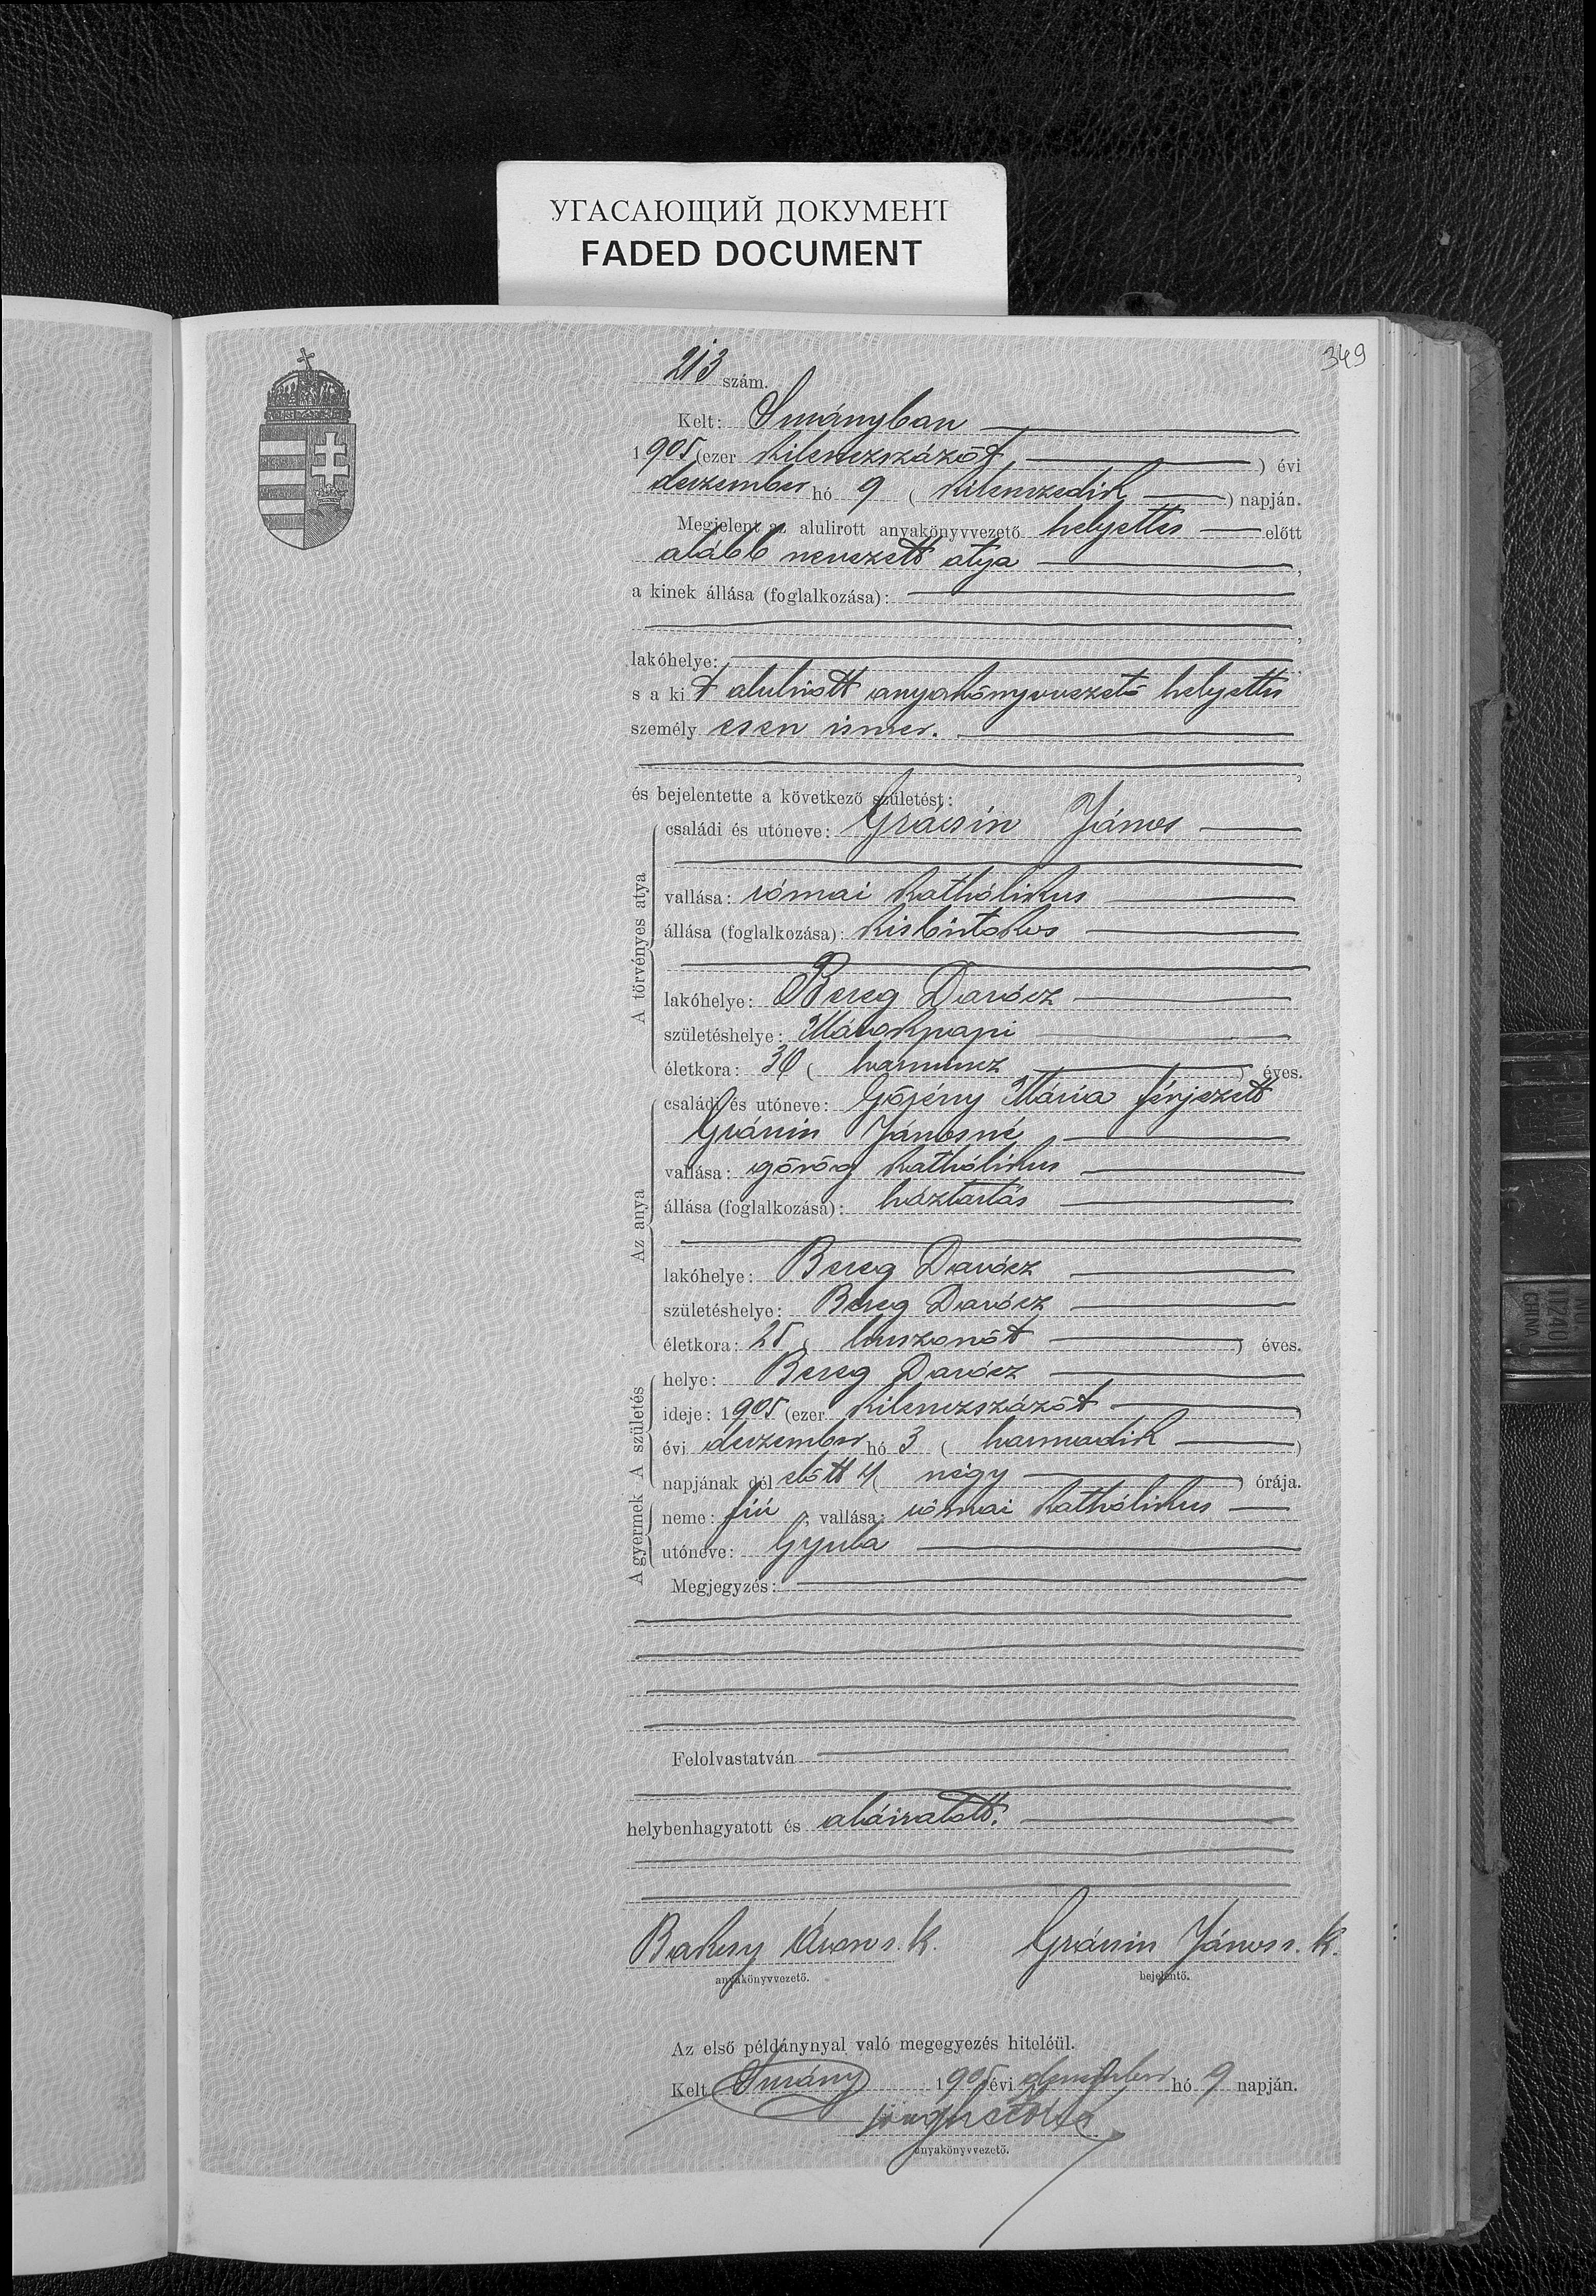 УГАСАЮЩИЙ ДОКУМЕНТ
FADED DOCUMENT
349
213 szám.
Kelt: Surányban
1905 (ezer kilenczszázöt) évi
deczember hó 9 (kilenczedik) napján.
Megjelent az alulirott anyakönyvvezető helyettes előtt
alább nevezett atya,
a kinek állása (foglalkozása):
lakóhelye:
s a kit alulirott anyakönyvvezető helyettes
személyesen ismer.
és bejelentette a következő születést:
A törvényes atya
családi és utóneve: Grácsin János
vallása: római katholikus
állása (foglalkozása): kisbirtokos
lakóhelye: Bereg Darócz
születéshelye: Márokpapi
életkora: 30 (harmincz) éves.
Az anya
családi és utóneve: Gőjény Mária férjezett
Grácsin Jánosné
vallása: görög katholikus
állása (foglalkozása): háztartás
lakóhelye: Bereg Darócz
születéshelye: Bereg Darócz
életkora: 25 (huszonöt) éves.
A születés
helye: Bereg Darócz
ideje: 1905 (ezer kilenczszázöt)
évi deczember hó 3 (harmadik)
napjának dél előtt 4 (négy) órája.
A gyermek
neme: fiú; vallása: római katholikus
utóneve: Gyula
Megjegyzés:
Felolvastatván
helybenhagyatott és aláiratott.
Áron s. k. Grácsin János s. k.
anyakönyvvezető. bejelentő.
Az első példánynyal való megegyezés hiteléül.
Kelt Surány 1905 évi deczember hó 9 napján.
anyakönyvvezető.